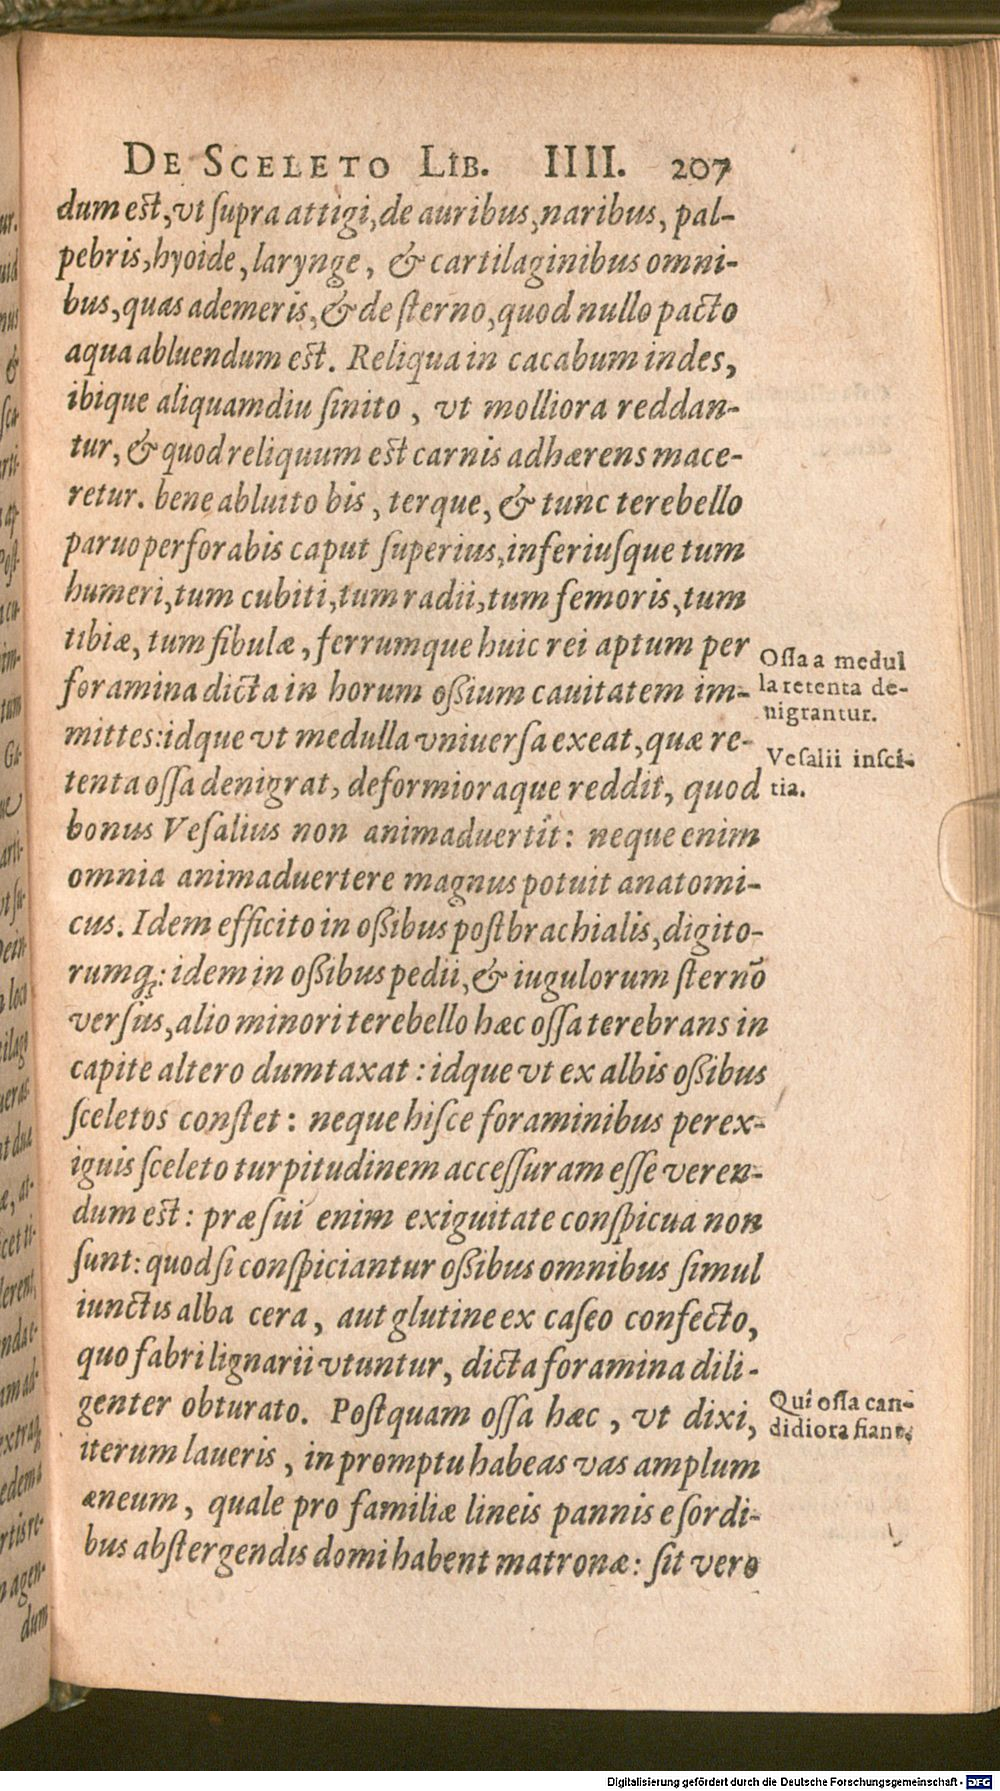 DE SCELETO LIB. IIII. 207
dum est, vt supra attigi, de auribus, naribus, pal-
pebris, hyoide, larynge, & cartilaginibus omni-
bus, quas ademeris, & de sterno, quod nullo pacto
aqua abluendum est. Reliqua in cacabum indes,
ibique aliquamdiu sinito, vt molliora reddan-
tur, & quod reliquum est carnis adhærens mace-
retur. bene abluito bis, terque, & tunc terebello
paruo perforabis caput superius, inferiusque tum
humeri, tum cubiti, tum radii, tum femoris, tum
tibiæ, tum fibulæ, ferrumque huic rei aptum per
foramina dicta in horum ossium cauitatem im-
mittes: idque vt medulla vniuersa exeat, quæ re-
tenta ossa denigrat, deformioraque reddit, quod
bonus Vesalius non animaduertit: neque enim
omnia animaduertere magnus potuit anatomi-
cus. Idem efficito in ossibus postbrachialis, digito-
rumq;: idem in ossibus pedii, & iugulorum sternū
versus, alio minori terebello hæc ossa terebrans in
capite altero dumtaxat: idque vt ex albis ossibus
sceletos constet: neque hisce foraminibus perex-
iguis sceleto turpitudinem accessuram esse veren-
dum est: præ sui enim exiguitate conspicua non
sunt: quod si conspiciantur ossibus omnibus simul
iunctis alba cera, aut glutine ex caseo confecto,
quo fabri lignarii vtuntur, dicta foramina dili-
genter obturato. Postquam ossa hæc, vt dixi,
iterum laueris, in promptu habeas vas amplum
æneum, quale pro familiæ lineis pannis e sordi-
bus abstergendis domi habent matronæ: sit vero
Ossa a medul
la retenta de-
nigrantur.
Vesalii insci-
tia.
Qui ossa can-
didiora fiant.
Digitalisierung gefördert durch die Deutsche Forschungsgemeinschaft - DFG